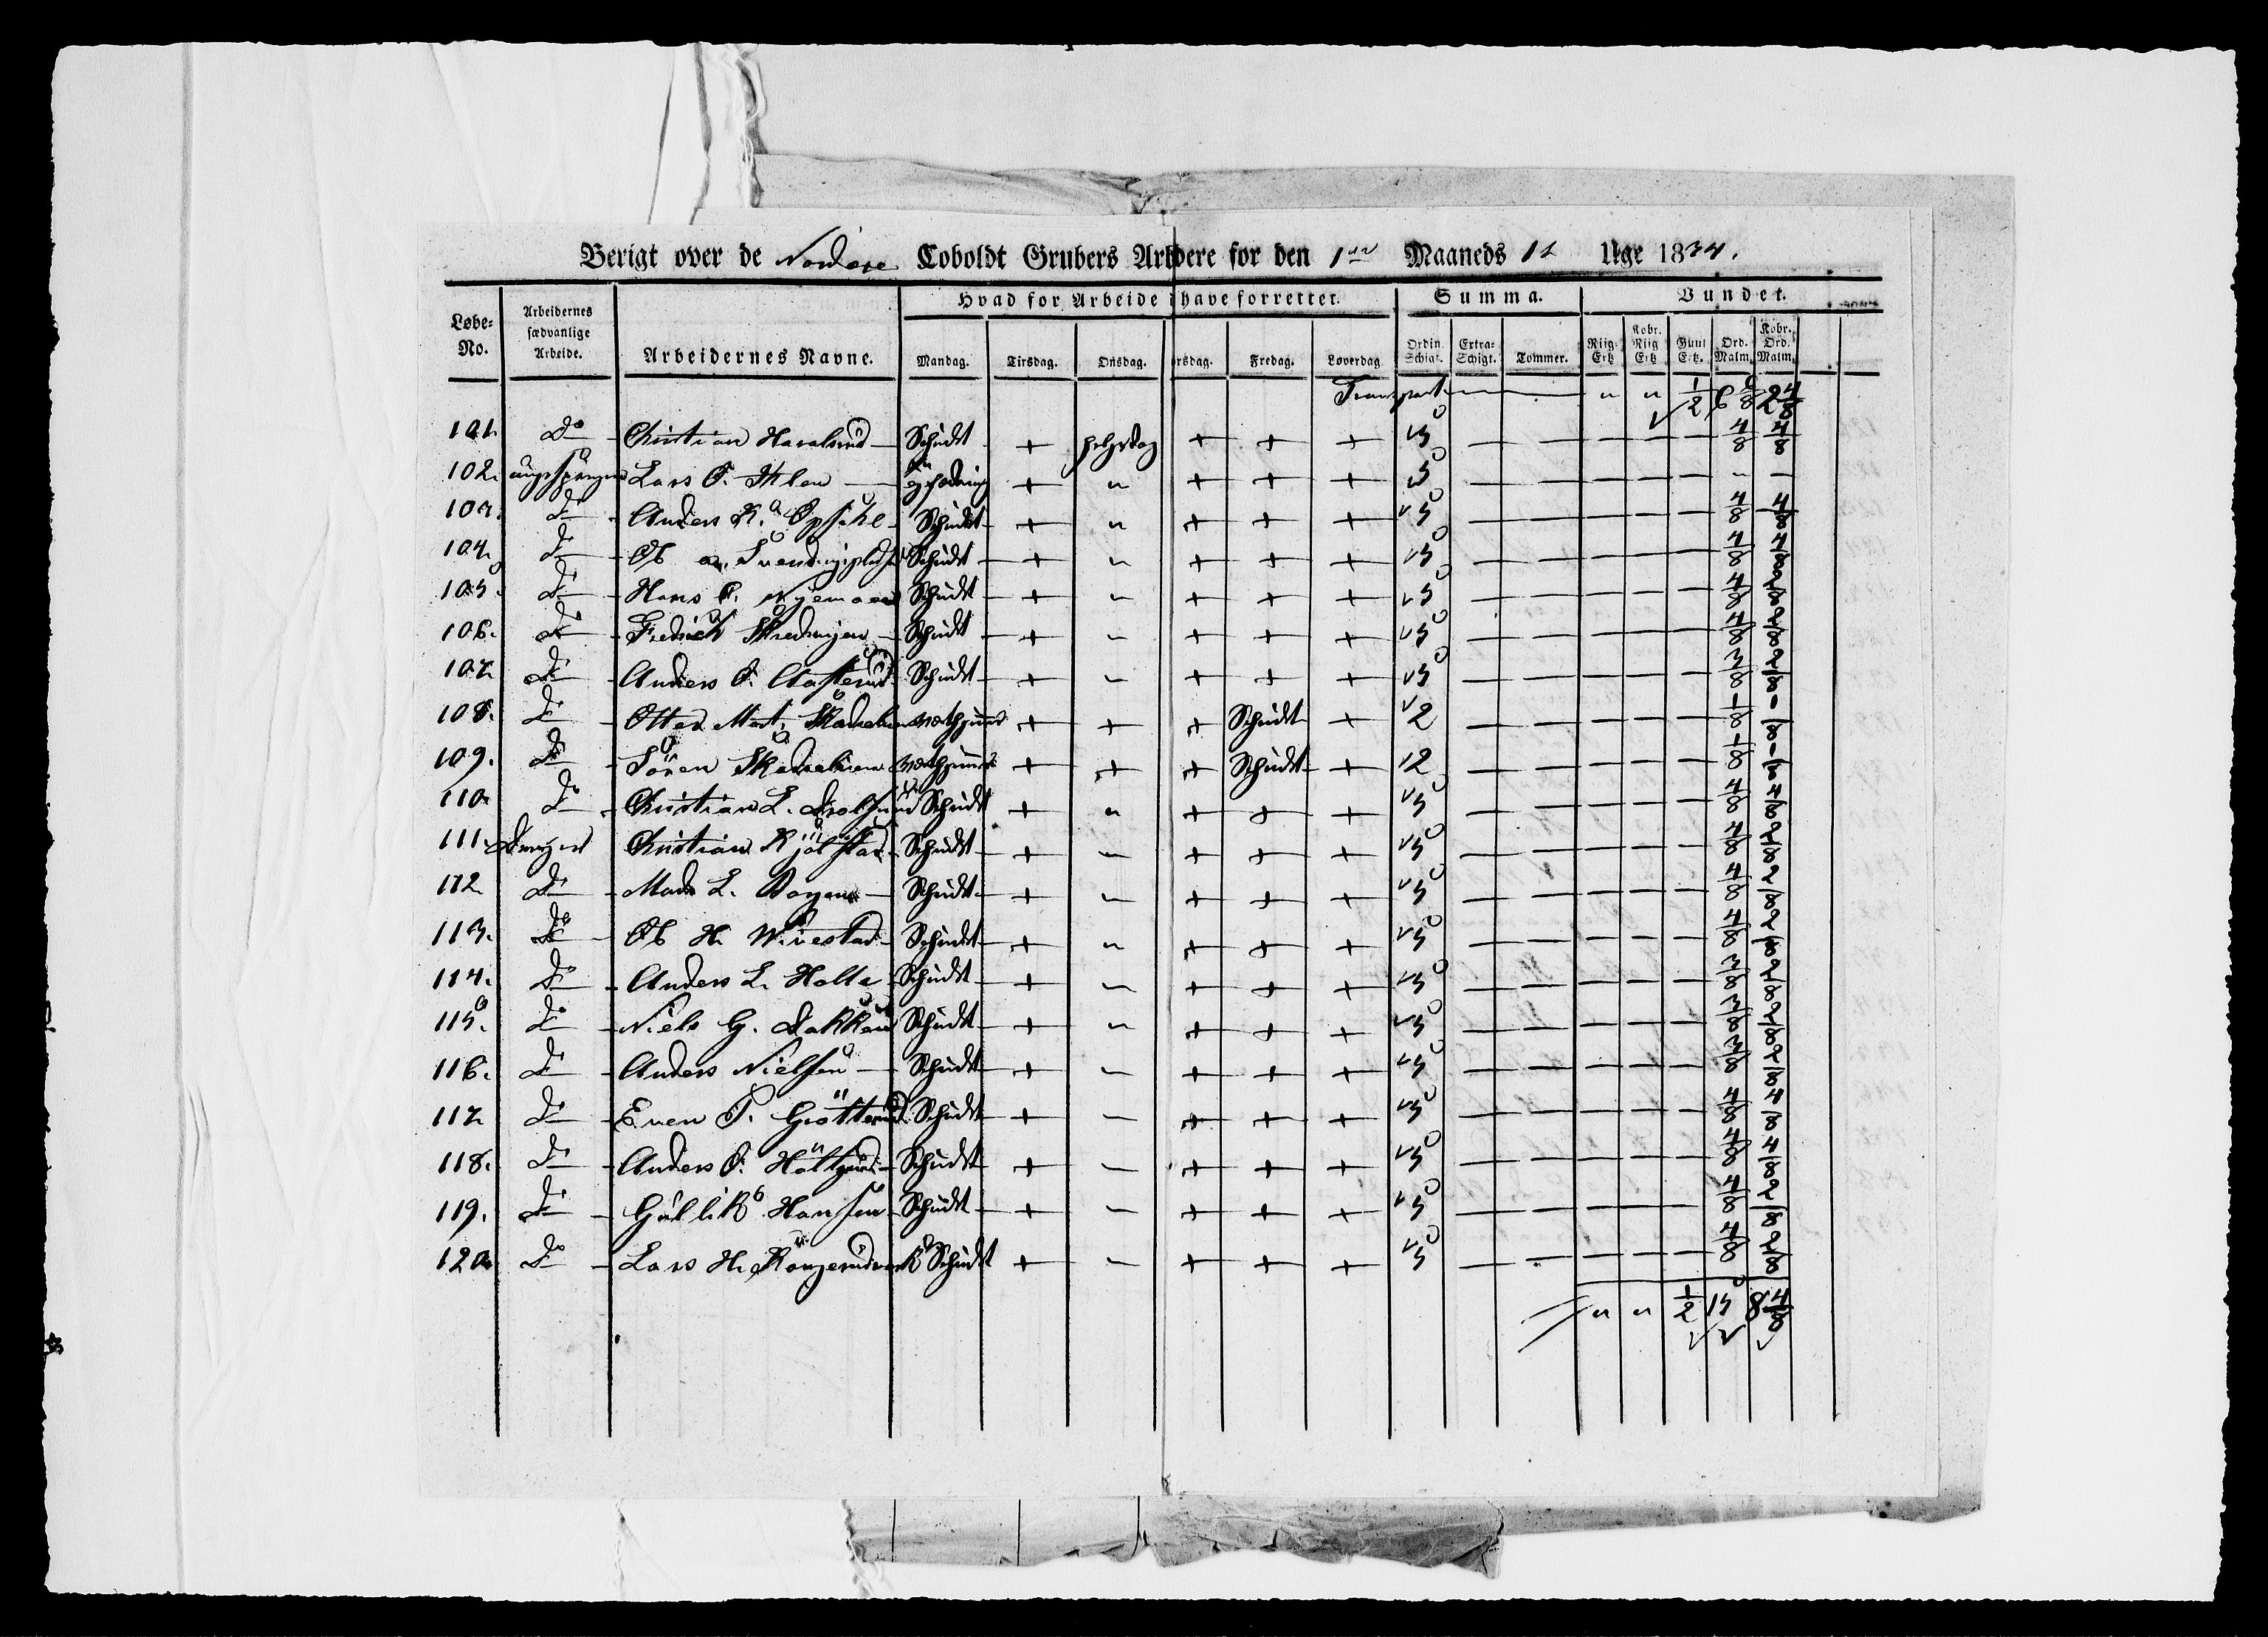 Berigt over de Nordre Coboldt Grubers Arbdere for den 1ste Maaneds 1ste Uge 1834.
Løbe-No. Arbeidernes sædvanlige Arbeide. Arbeidernes Navne. Hvad for Arbeide have forrettet. Summa. Vundet.
Mandag. Tirsdag. Onsdag. orsdag. Fredag. Løverdag. Ordin. Schigt. Extra-Schigt. Tommer. Riig Ertz Kobr. Riig Ertz Guul Ertz. Ord. Malm. Kobr. Ord. Malm.
Transport — — " " 1/2 6 6/8 2 4/8
101. Do Christian Haralsrud Scheidt + + + + 5 — — — — — 4/8 4/8
102. Lars O. Ihlen — + " + + + 5 — — — — — — —
103. Do Anders K. Opsahl Scheidt + " + + + 5 — — — — — 4/8 4/8
104. Do Ol. Scheidt + " + + + 5 — — — — — 4/8 4/8
105. Do Hans O. Nyemoen Scheidt + " + + + 5 — — — — — 4/8 2/8
106. Do Fredrich Skredsvigen Scheidt + " + + + 5 — — — — — 4/8 2/8
107. Do Anders O. Aasterud Scheidt + " + + + 5 — — — — — 3/8 2/8
108. Do Otter Mat. + + + Scheidt + 2 — — — — — 1/8 1/8
109. Do Sören + + + Scheidt + 2 — — — — — 1/8 1/8
110. Do Christian L. Scheidt + " + + + 5 — — — — — 4/8 4/8
111. Christian Kjölstad Scheidt + " + + + 5 — — — — — 4/8 2/8
112. Do Mads L. Scheidt + " + + + 5 — — — — — 4/8 2/8
113. Do Ol. H. Wivestad Scheidt + " + + + 5 — — — — — 4/8 2/8
114. Do Anders L. Holte Scheidt + " + + + 5 — — — — — 3/8 2/8
115. Do Niels G. Scheidt + " + + + 5 — — — — — 3/8 2/8
116. Do Anders Nielsen Scheidt + " + + + 5 — — — — — 3/8 2/8
117. Do Even P. Grötterud Scheidt + " + + + 5 — — — — — 4/8 4/8
118. Do Anders O. Scheidt + " + + + 5 — — — — — 4/8 4/8
119. Do Gullik Hansen Scheidt + " + + + 5 — — — — — 4/8 2/8
120. Do Lars H. Scheidt + " + + + 5 — — — — — 4/8 2/8
" " 1/2 15 8 4/8